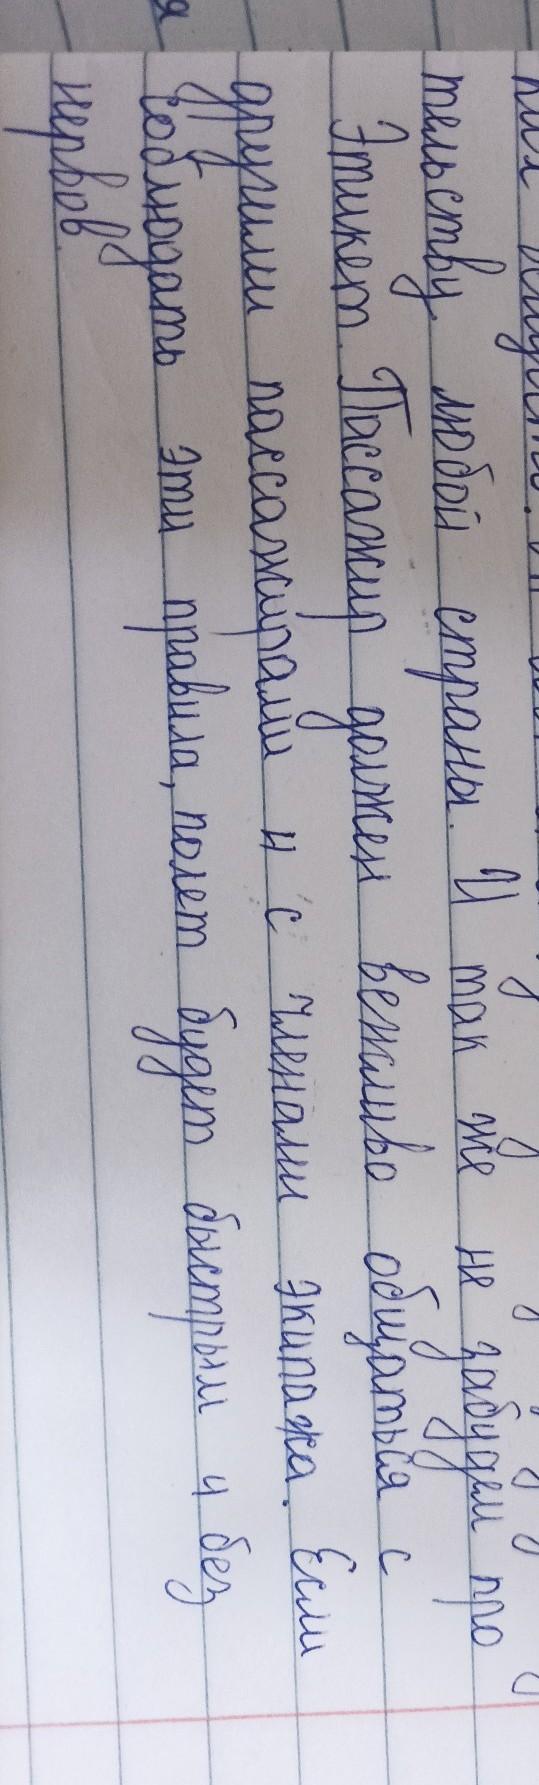 тельству любой страны. И так же не забудем про
Этикет. Пассажир должен вежливо общаться с
другими пассажирами и с членами экипажа. Если
соблюдать эти правила, полет будет быстрым и без
нервов.